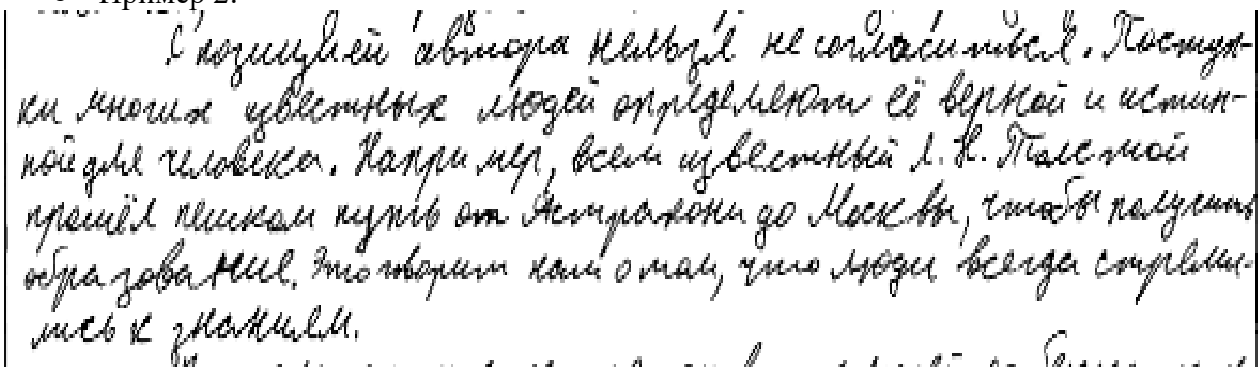 Пример 2.
С позицией автора нельзя не согласиться. Поступ-
ки многих известных людей определяют её верной и истин-
ной для человека. Например, всем известный Л. Н. Толстой
прошёл пешком путь от Астрахони до Москвы, чтобы получить
образование. Это говорит нам о том, что люди всегда стреми-
лись к знаниям.